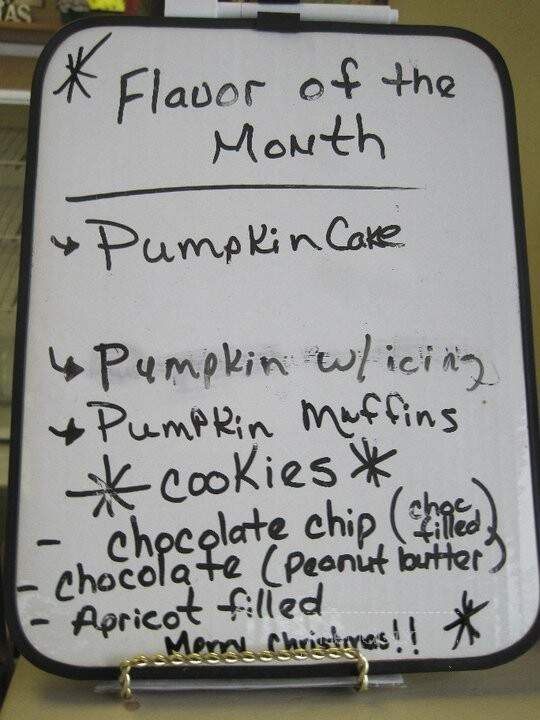 * Flavor of the
Month
→ Pumpkin Cake
→ Pumpkin w/ icing
→ Pumpkin Muffins
* cookies *
- chocolate chip (choc filled)
- chocolate (peanut butter)
- Apricot filled
Merry Christmas!! *